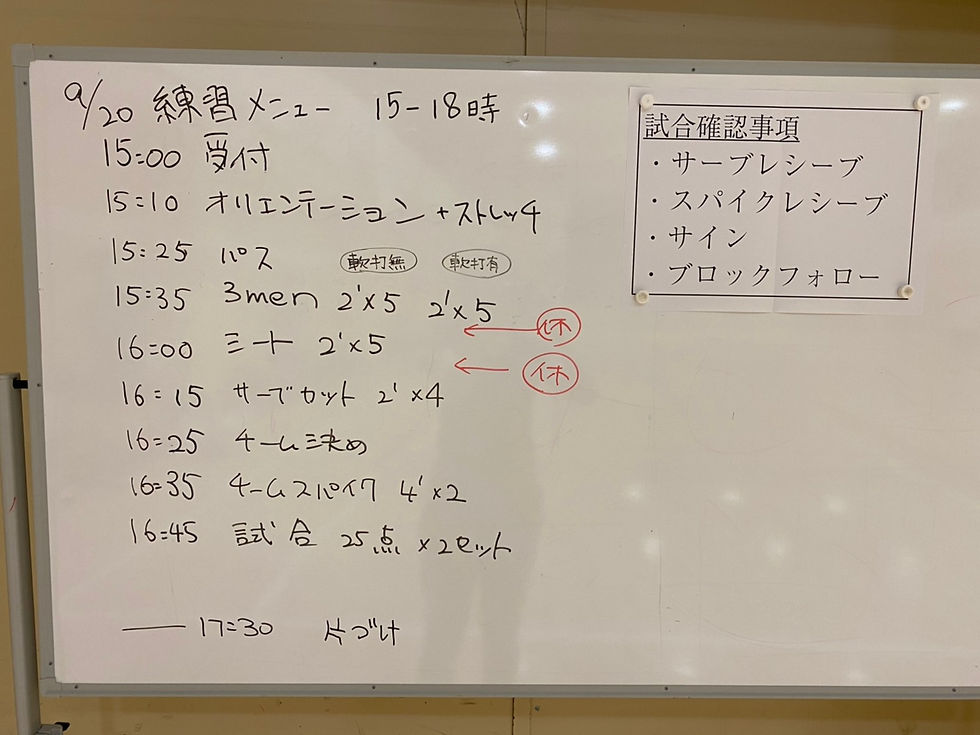 9/20 練習メニュー 15-18時
15:00 受付
15:10 オリエンテーション+ストレッチ
15:25 パス 軟打無 軟打有
15:35 3men 2'×5 2'×5
←休
16:00 ミート 2'×5
←休
16:15 サーブカット 2'×4
16:25 チーム決め
16:35 チームスパイク 4'×2
16:45 試合 25点×2セット
17:30 片づけ
試合確認事項
・サーブレシーブ
・スパイクレシーブ
・サイン
・ブロックフォロー